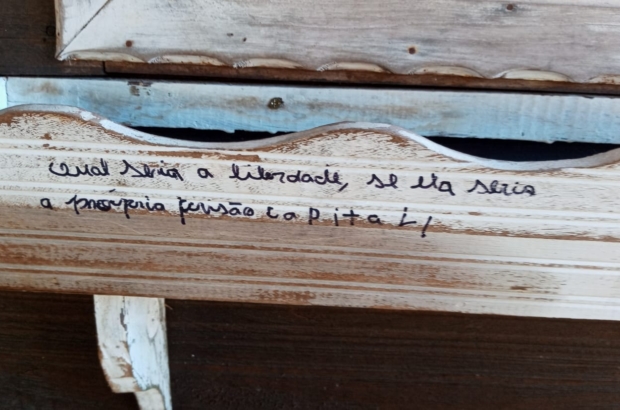 Qual seria a liberdade, se ela seria
a própria prisão capital!